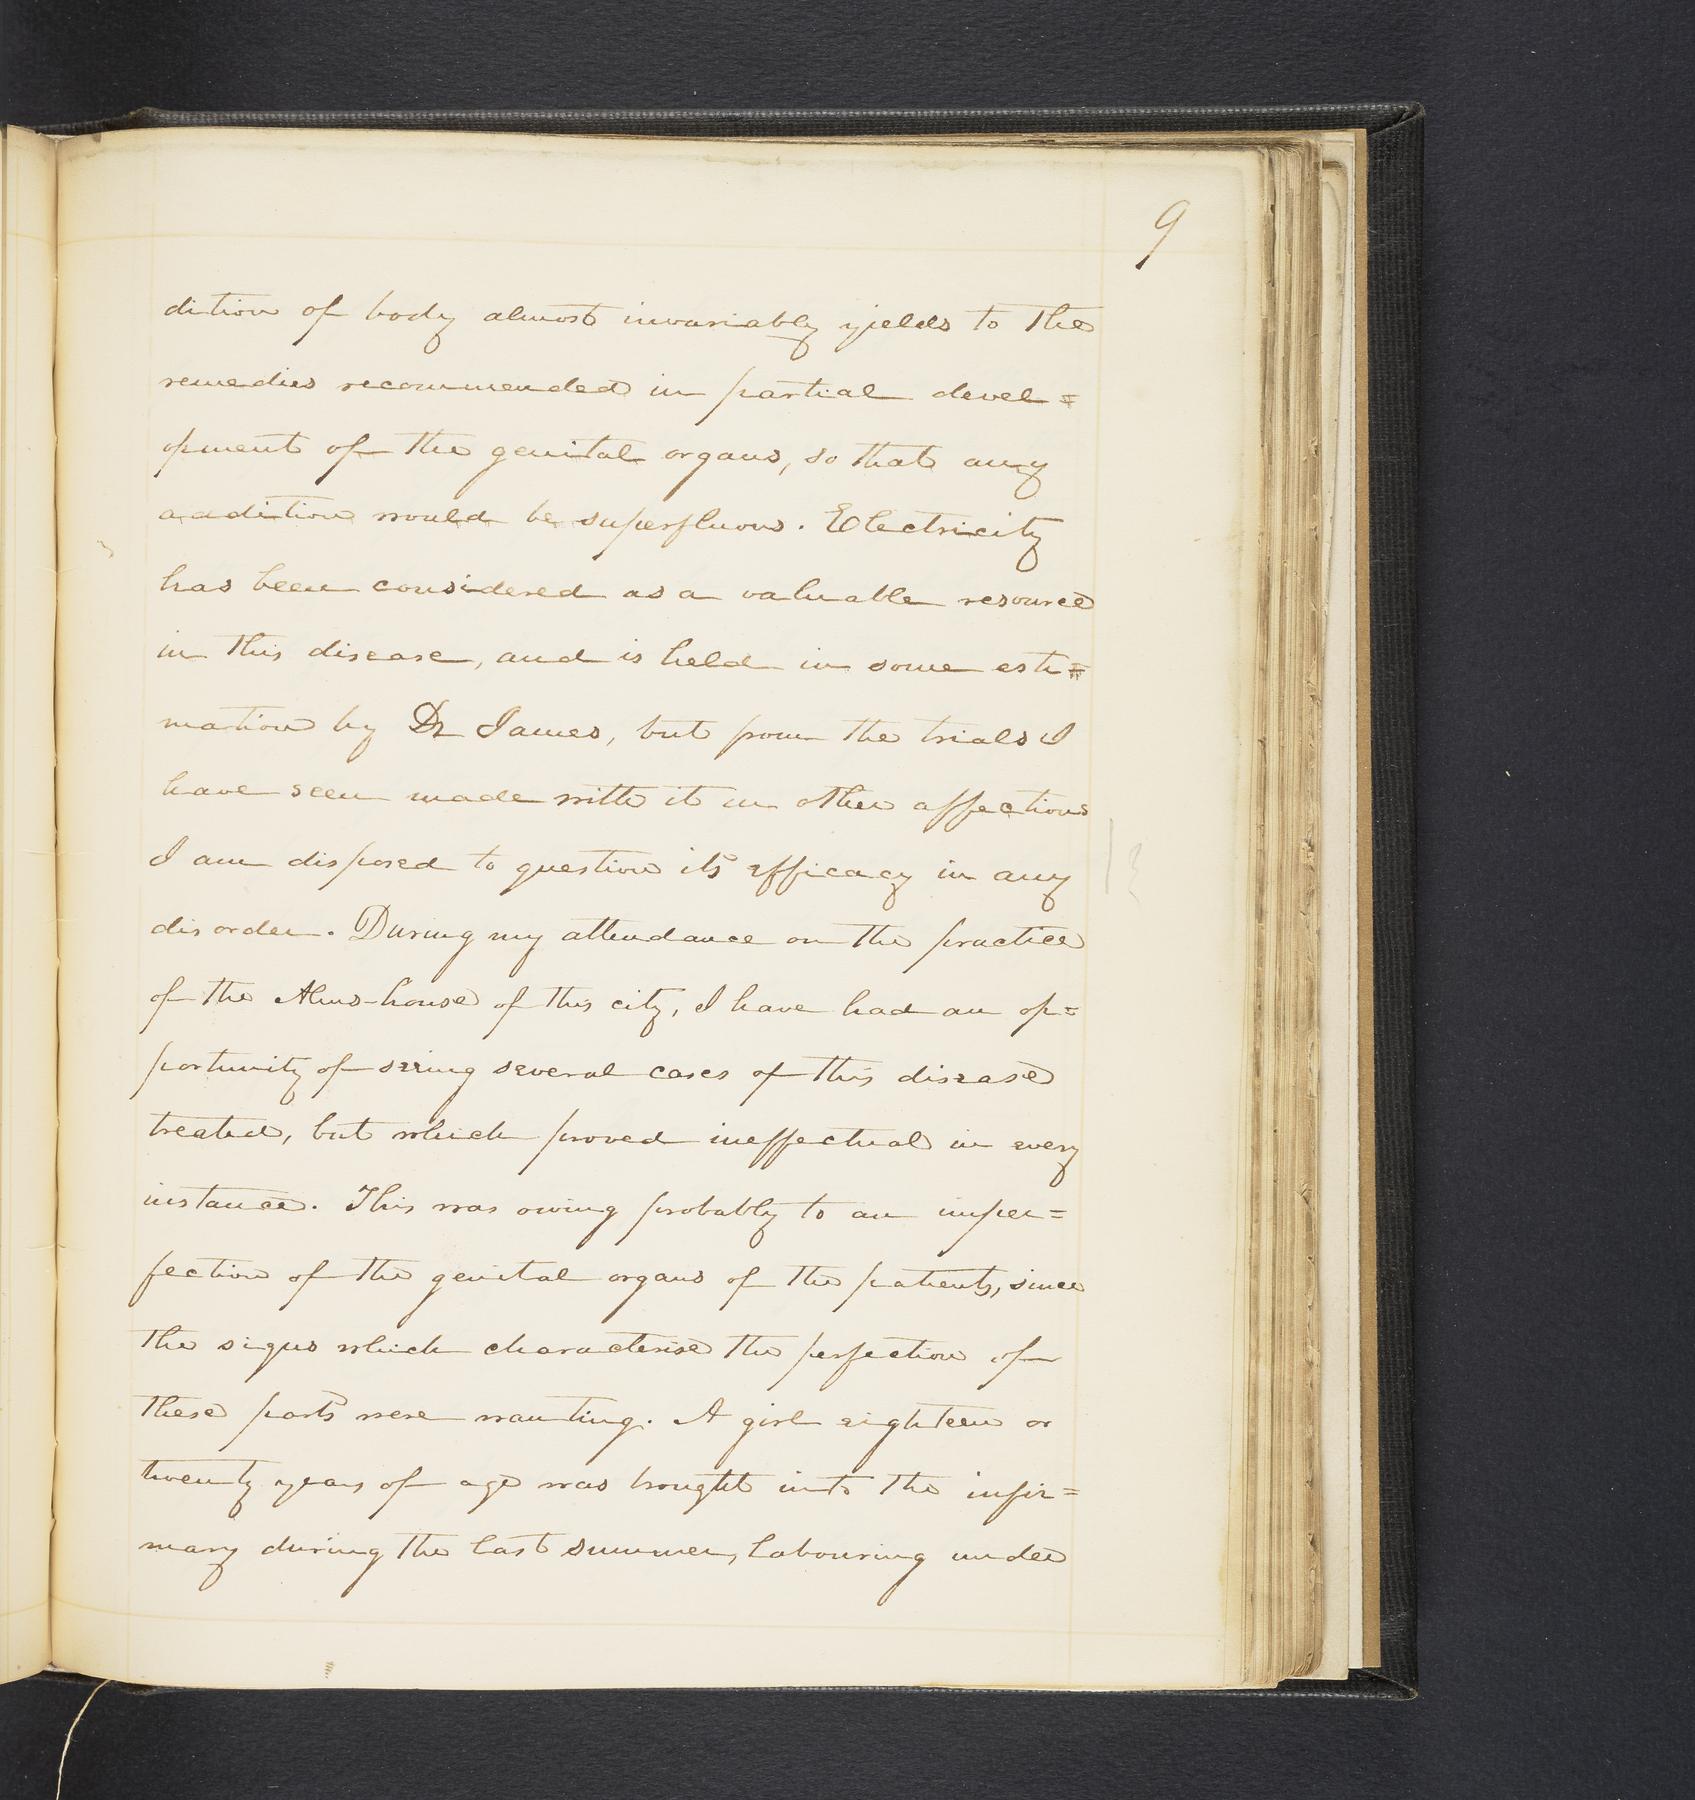 9
dition of body almost invariably yields to the
remedies recommended in partial devel=
opment of the genital organs, so that any
addition would be superfluous. Electricity
has been considered as a valuable resource
in this disease, and is held in some esti=
mation by Dr James, but from the trials I
have seen made with it in other affections
I am disposed to question its efficacy in any
disorder. During my attendance on the practice
of the Alms-house of this city, I have had an op=
portunity of seeing several cases of this disease
treated, but which proved ineffectual in every
instance. This was owing probably to an imper=
fection of the genital organs of the patients, since
the signs which characterise the perfection of
these parts were wanting. A girl eighteen or
twenty years of age was brought into the infir=
mary during the last summer, labouring under